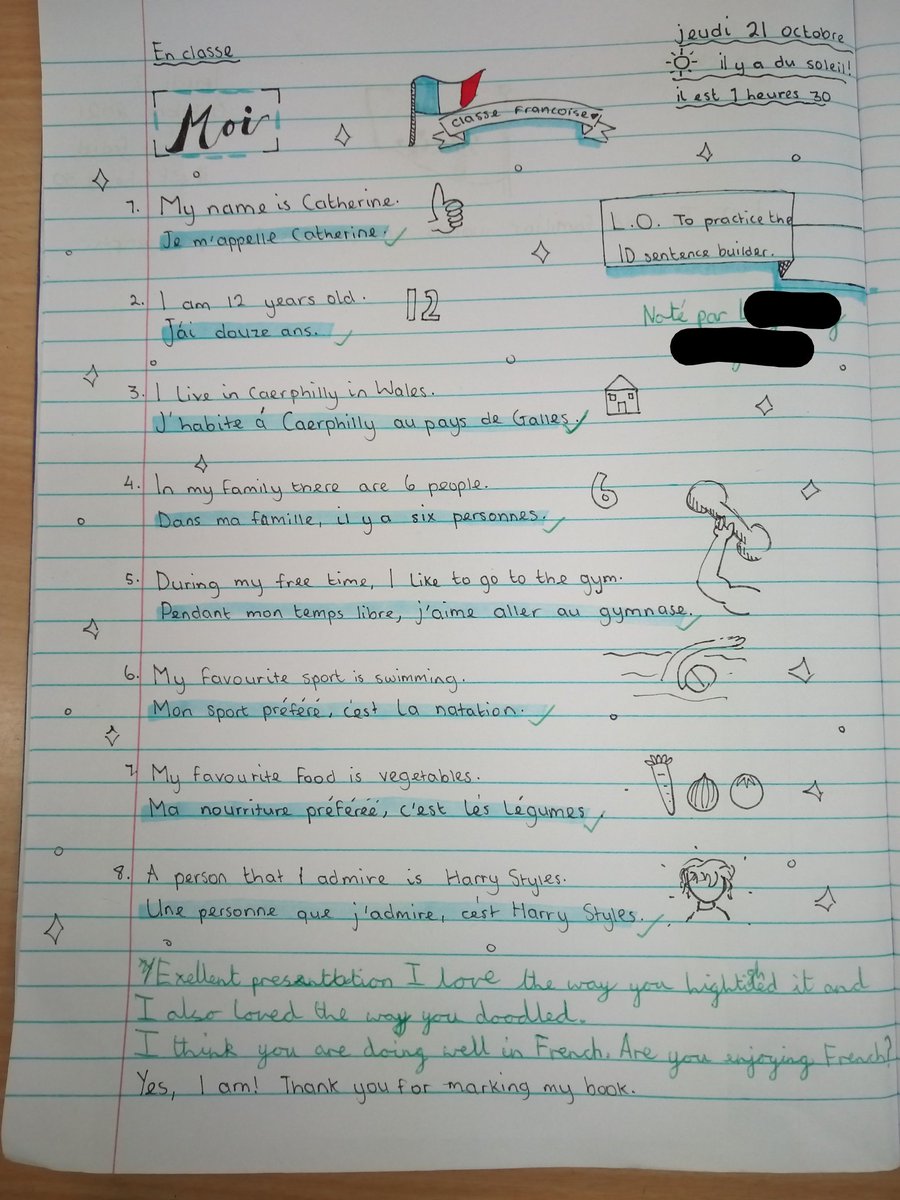 En classe
jeudi 21 octobre
il y a du soleil!
il est 1 heures 30
Moi
Classe Francoise
L.O. To practice the
ID sentence builder.
1. My name is Catherine.
Je m'appelle Catherine.
2. I am 12 years old.
12
J'ai douze ans.
Noté par
3. I live in Caerphilly in Wales.
J'habite á Caerphilly au pays de Galles.
4. In my family there are 6 people.
6
Dans ma famille, il y a six personnes.
5. During my free time, I like to go to the gym.
Pendant mon temps libre, j'aime aller au gymnase.
6. My favourite sport is swimming.
Mon sport préféré, c'est la natation.
7. My favourite food is vegetables.
Ma nourriture préféréé, c'est lés légumes
8. A person that I admire is Harry Styles.
Une personne que j'admire, c'est Harry Styles.
Exellent presentation I love the way you it and
I also loved the way you doodled.
I think you are doing well in French. Are you enjoying French?
Yes, I am! Thank you for marking my book.